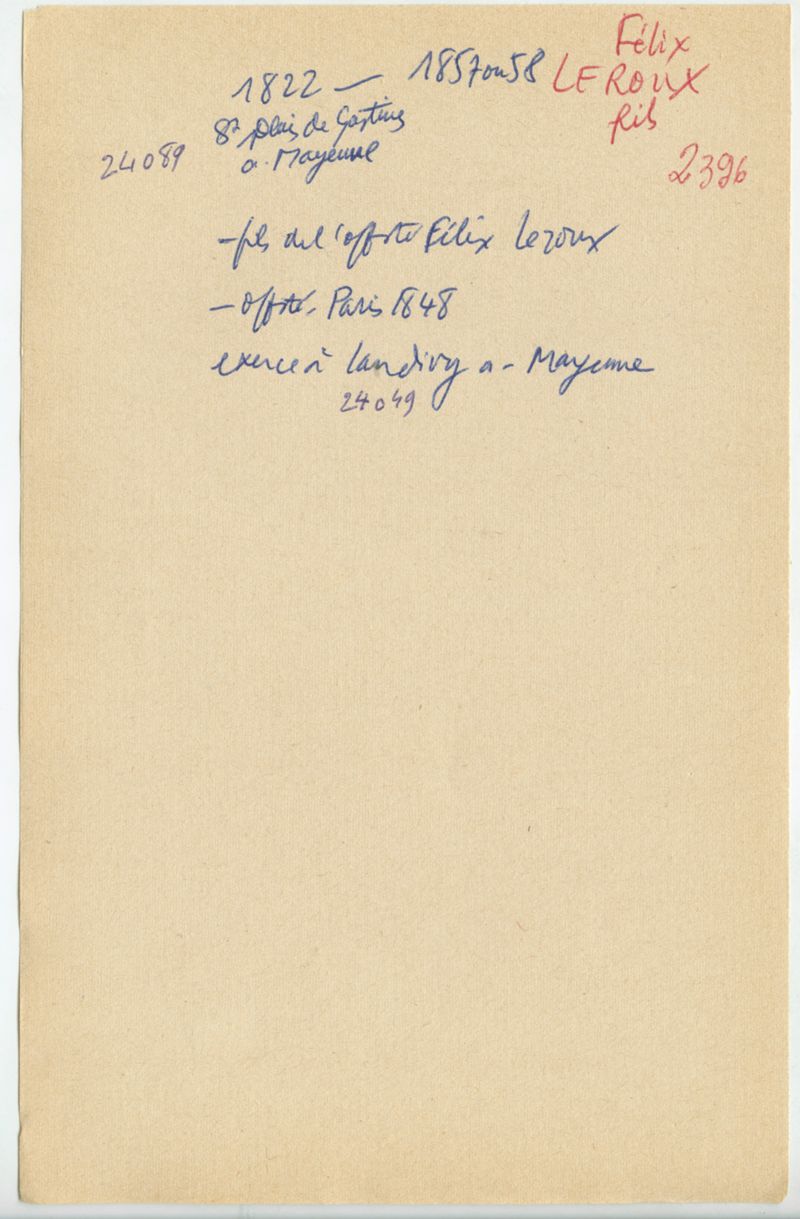 Félix
LEROUX
fils
2396
1822 — 1857 ou 58
St plais de Gastines
a. Mayenne
24089
- fils de l'offté Félix Leroux
- offté. Paris 1848
exerce à Landivy a - Mayenne
24049